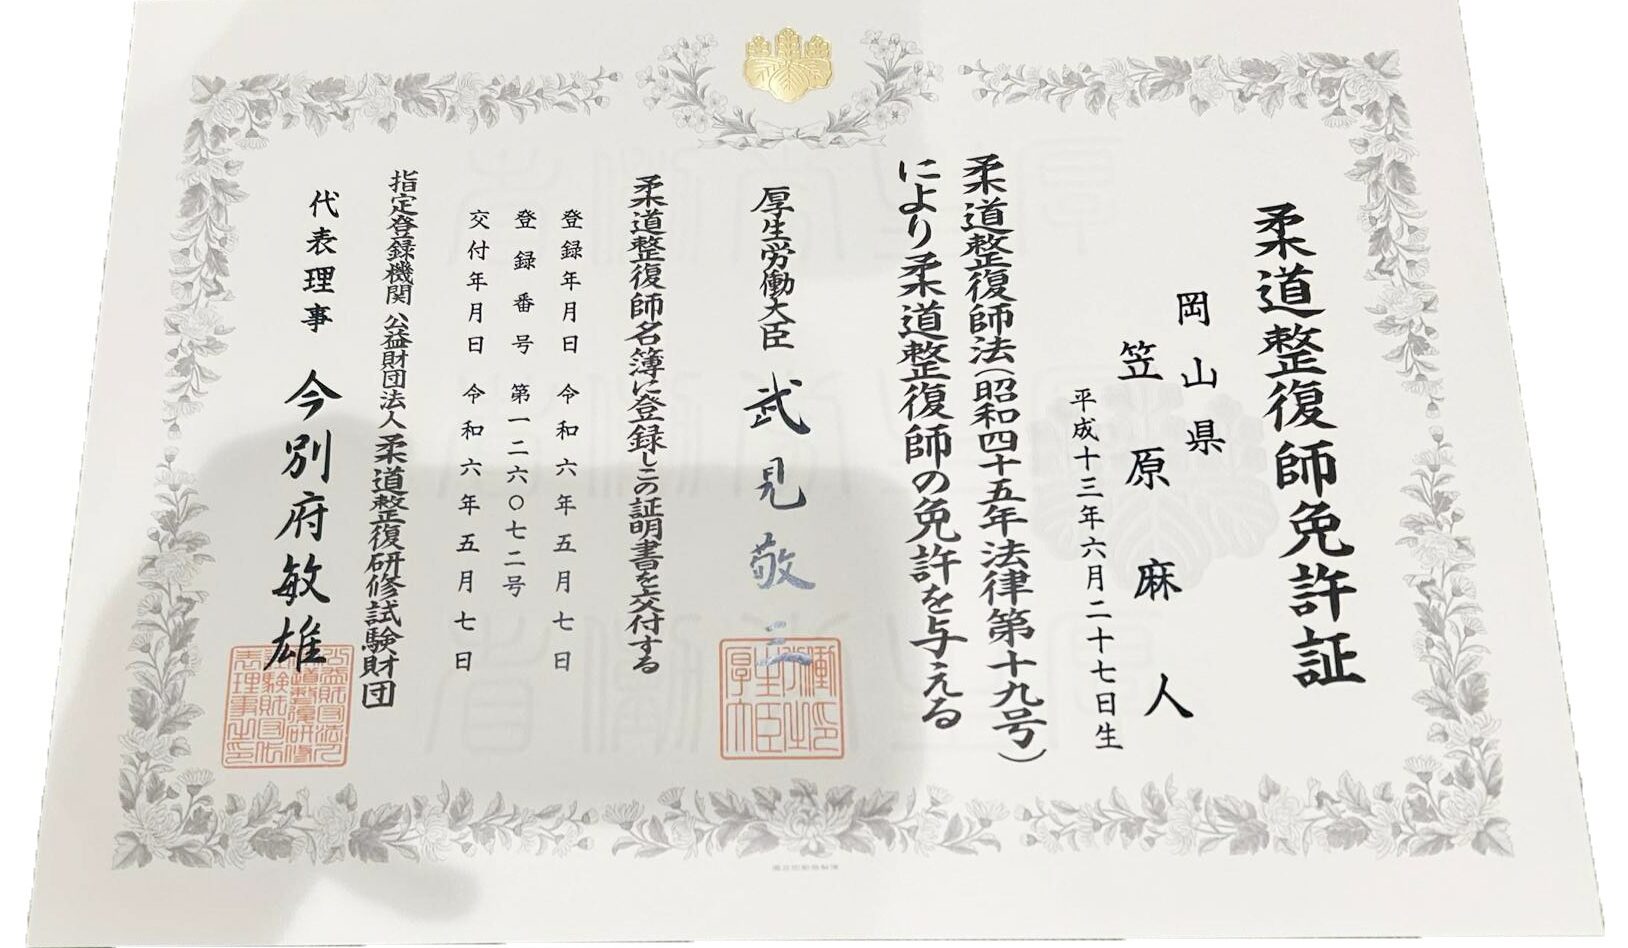 柔道整復師免許証
岡山県
笠原麻人
平成十三年六月二十七日生
柔道整復師法(昭和四十五年法律第十九号)
により柔道整復師の免許を与える
厚生労働大臣 武見敬三
柔道整復師名簿に登録しこの証明書を交付する
登録年月日 令和六年五月七日
登録番号 第一二六〇七二号
交付年月日 令和六年五月七日
指定登録機関 公益財団法人 柔道整復研修試験財団
代表理事 今別府敏雄